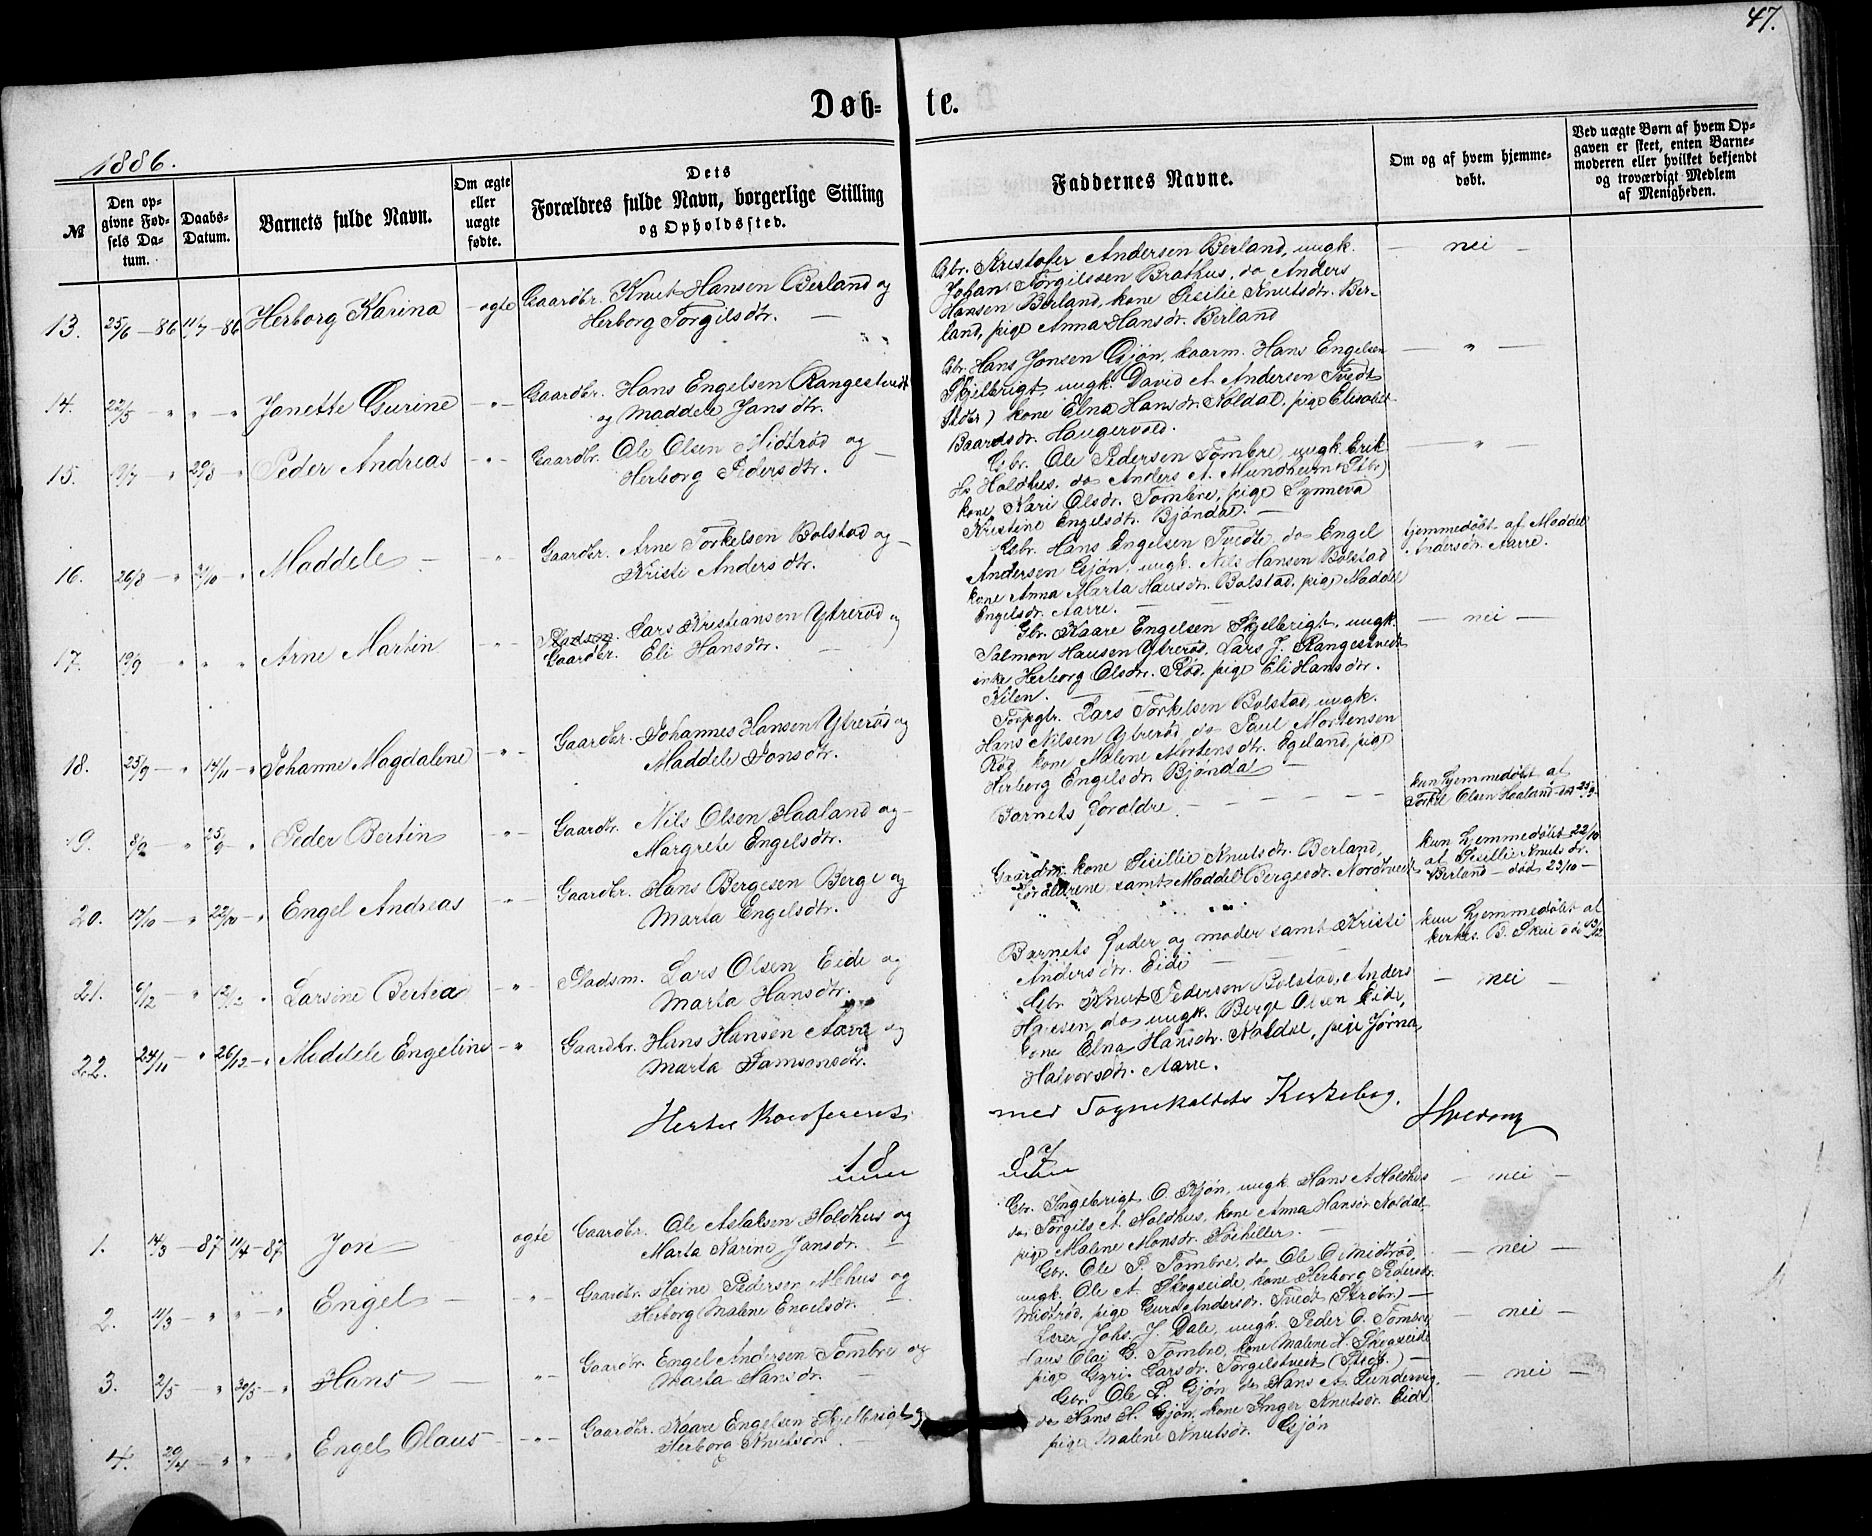 47.
Døb- te.
1886.
№
Den op-
givne Fød-
sels Da-
tum.
Daabs-
Datum.
Barnets fulde Navn.
Om ægte
eller
uægte
fødte.
Dets
Forældres fulde Navn, borgerlige Stilling
og Opholdssted.
Faddernes Navne.
Om og af hvem hjemme-
døbt.
Ved uægte Børn af hvem Op-
gaven er skeet, enten Barne-
moderen eller hvilket bekjendt
og troværdigt Medlem
af Menigheden.
13. 25/6 — 86 11/7 — 86 Herborg Karina — ægte Gaardbr. Knut Hansen Berland og
Herborg Torgilsdtr. —
Gbr. Kristofer Andersen Berland, ungk.
Johan Torgilssen Brathus, do Anders
Hansen Berland, kone Sesilie Knutsdtr. Ber-
land, pige Anna Hansdr. Berland
— nei —
14. 22/5 — " " — " Janette Gurine — " — Gaardbr. Hans Engelsen Rangestvedt
og Maddele Jansdtr.
Gbr. Hans Jonsen Gjøn, kaarm. Hans Engelsen
Skjelbrigt, ungk. David A. Andersen Tvedt
kone Elna Hansdr. Noldal, pige Elisabet
Baardsdr. Haugervold.
— " —
15. 19/7 — " 29/8 — " Peder Andreas — " — Gaardbr. Ole Olsen Midtrød og —
Herborg Pedersdtr.
Gbr. Ole Pedersen Tombre, ungk. Erik
Hs Holdhus, do Anders A. Mundheim
kone Kari Olsdr. Tombre, pige Synneva
Kristine Engelsdtr. Bjøndal. —
— " —
16. 26/8 — " 31/10 — " Maddele — " Gaardbr. Arne Torkelsen Bolstad og —
Kristi Andersdtr.
Gbr. Hans Engelsen Tvedte, do Engel
Andersen Gjøn, ungk. Nils Hansen Bolstad
kone Anna Marta Hansdr. Bolstad, pige Maddel
Engelsdr. Aarre. —
hjemmedøbt af Maddel
Andersdr. Aarre.
17. 19/9 " " " Arne Martin " — Lars Kristiansen Ytrerød og
Gaardbr. Eli Hansdtr. —
Gbr. Kaare Engelsen Skjelbrigt, ungk.
Salmon Hansen Ytrerød, Lars J. Rangestvedt
enke Herborg Olsdr. Rød, pige Eli Hansdtr.
Kilen. —
— nei —
18. 25/9 — " 14/11 — " Johanne Magdalene — " — Gaardbr. Johannes Hansen Ytrerød og
Maddele Jonsdtr.
Lars Torkelsen Bolstad, ungk.
Hans Nilsen Ytrerød do Paul Mortensen
Rød, kone Malene Mortensdtr. Egeland, pige
Herborg Engelsdr. Bjøndal —
19. 8/9 — " 25/9 — " Peder Bertin — " — Gaardbr. Nils Olsen Haaland og —
Margrete Engelsdtr.
Barnets forældre — — — —
kun hjemmedøbt af
Torkel Olsen Haaland død 25/9
20. 17/10 — " 22/10 — " Engel Andreas — " — Gaardbr. Hans Bergesen Berge og
Marta Engelsdtr.
Gaardm. kone Sisillie Knutsdtr. Berland
forældrene samt Maddel Bergesdr. Nordtvedt
kun hjemmedøbt 22/10
af Sesillie Knutsdr.
Berland — død 23/10 —
21. 6/12 — " 12/12 " Larsine Bertea — " — Pladsm. Lars Olsen Eide og
Marta Hansdtr.
Barnets fader og moder samt Kristi
Andersdr. Eide —
kun hjemmedøbt af
kirkes. B. Skeie død 13/12
22. 24/11 — " 26/12 — " Maddele Engeline — " Gaardbr. Hans Hansen Aarre og
Marta Samsonsdtr.
Gbr. Knut Pedersen Bolstad, Anders
Hansen, do ungk. Berge Olsen Eide,
kone Elna Hansdtr. Noldal, pige Jørna
Halvorsdr. Aarre.
— nei —
Hertil Konfereret med Sognekaldets Kirkebog.
18 87
1. 14/3 — 87 11/4 — 87 Jon — ægte Gaardbr. Ole Aslaksen Holdhus og
Marta Karine Jansdr. —
Gbr. Ingebrigt O. Gjøn, ungk. Hans A Holdhus
do Torgils A. Holdhus, kone Anna Hansdr Noldal
pige Malene Monsdr. —
— nei —
2. 11/3 — " " — " Engel — " — Gaardbr. Heine Pedersen og
Herborg Malene Engelsdr. —
Gbr. Ole P. Tombre, do Ole O. Midtrød,
ungk. Ole A. Skogseide, kone Herborg Pedersdr.
Midtrød, pige Guro Andersdr. Tvedt —
— nei —
3. 2/5 — " 30/5 — " Hans — " — Gaardbr. Engel Andersen Tombre og
Marta Hansdr. —
Lærer Johs. J. Dale, ungk. Peder O. Tombre
Hans Olai E. Tombre, kone Malene A. Skogseide
pige Gyri Larsdr. Torgilstvedt —
— nei —
4. 20/4 — " " — " Engel Olaus — " — Gaardbr. Kaare Engelsen Skjelbrigt og
Herborg Knutsdr.
Gbr. Ole P. Gjøn, do Hans A. Lundervig.
do Hans H. Gjøn, kone Inger Knutsdr. Eide
pige Malene Knutsdr. Gjøn
— nei —